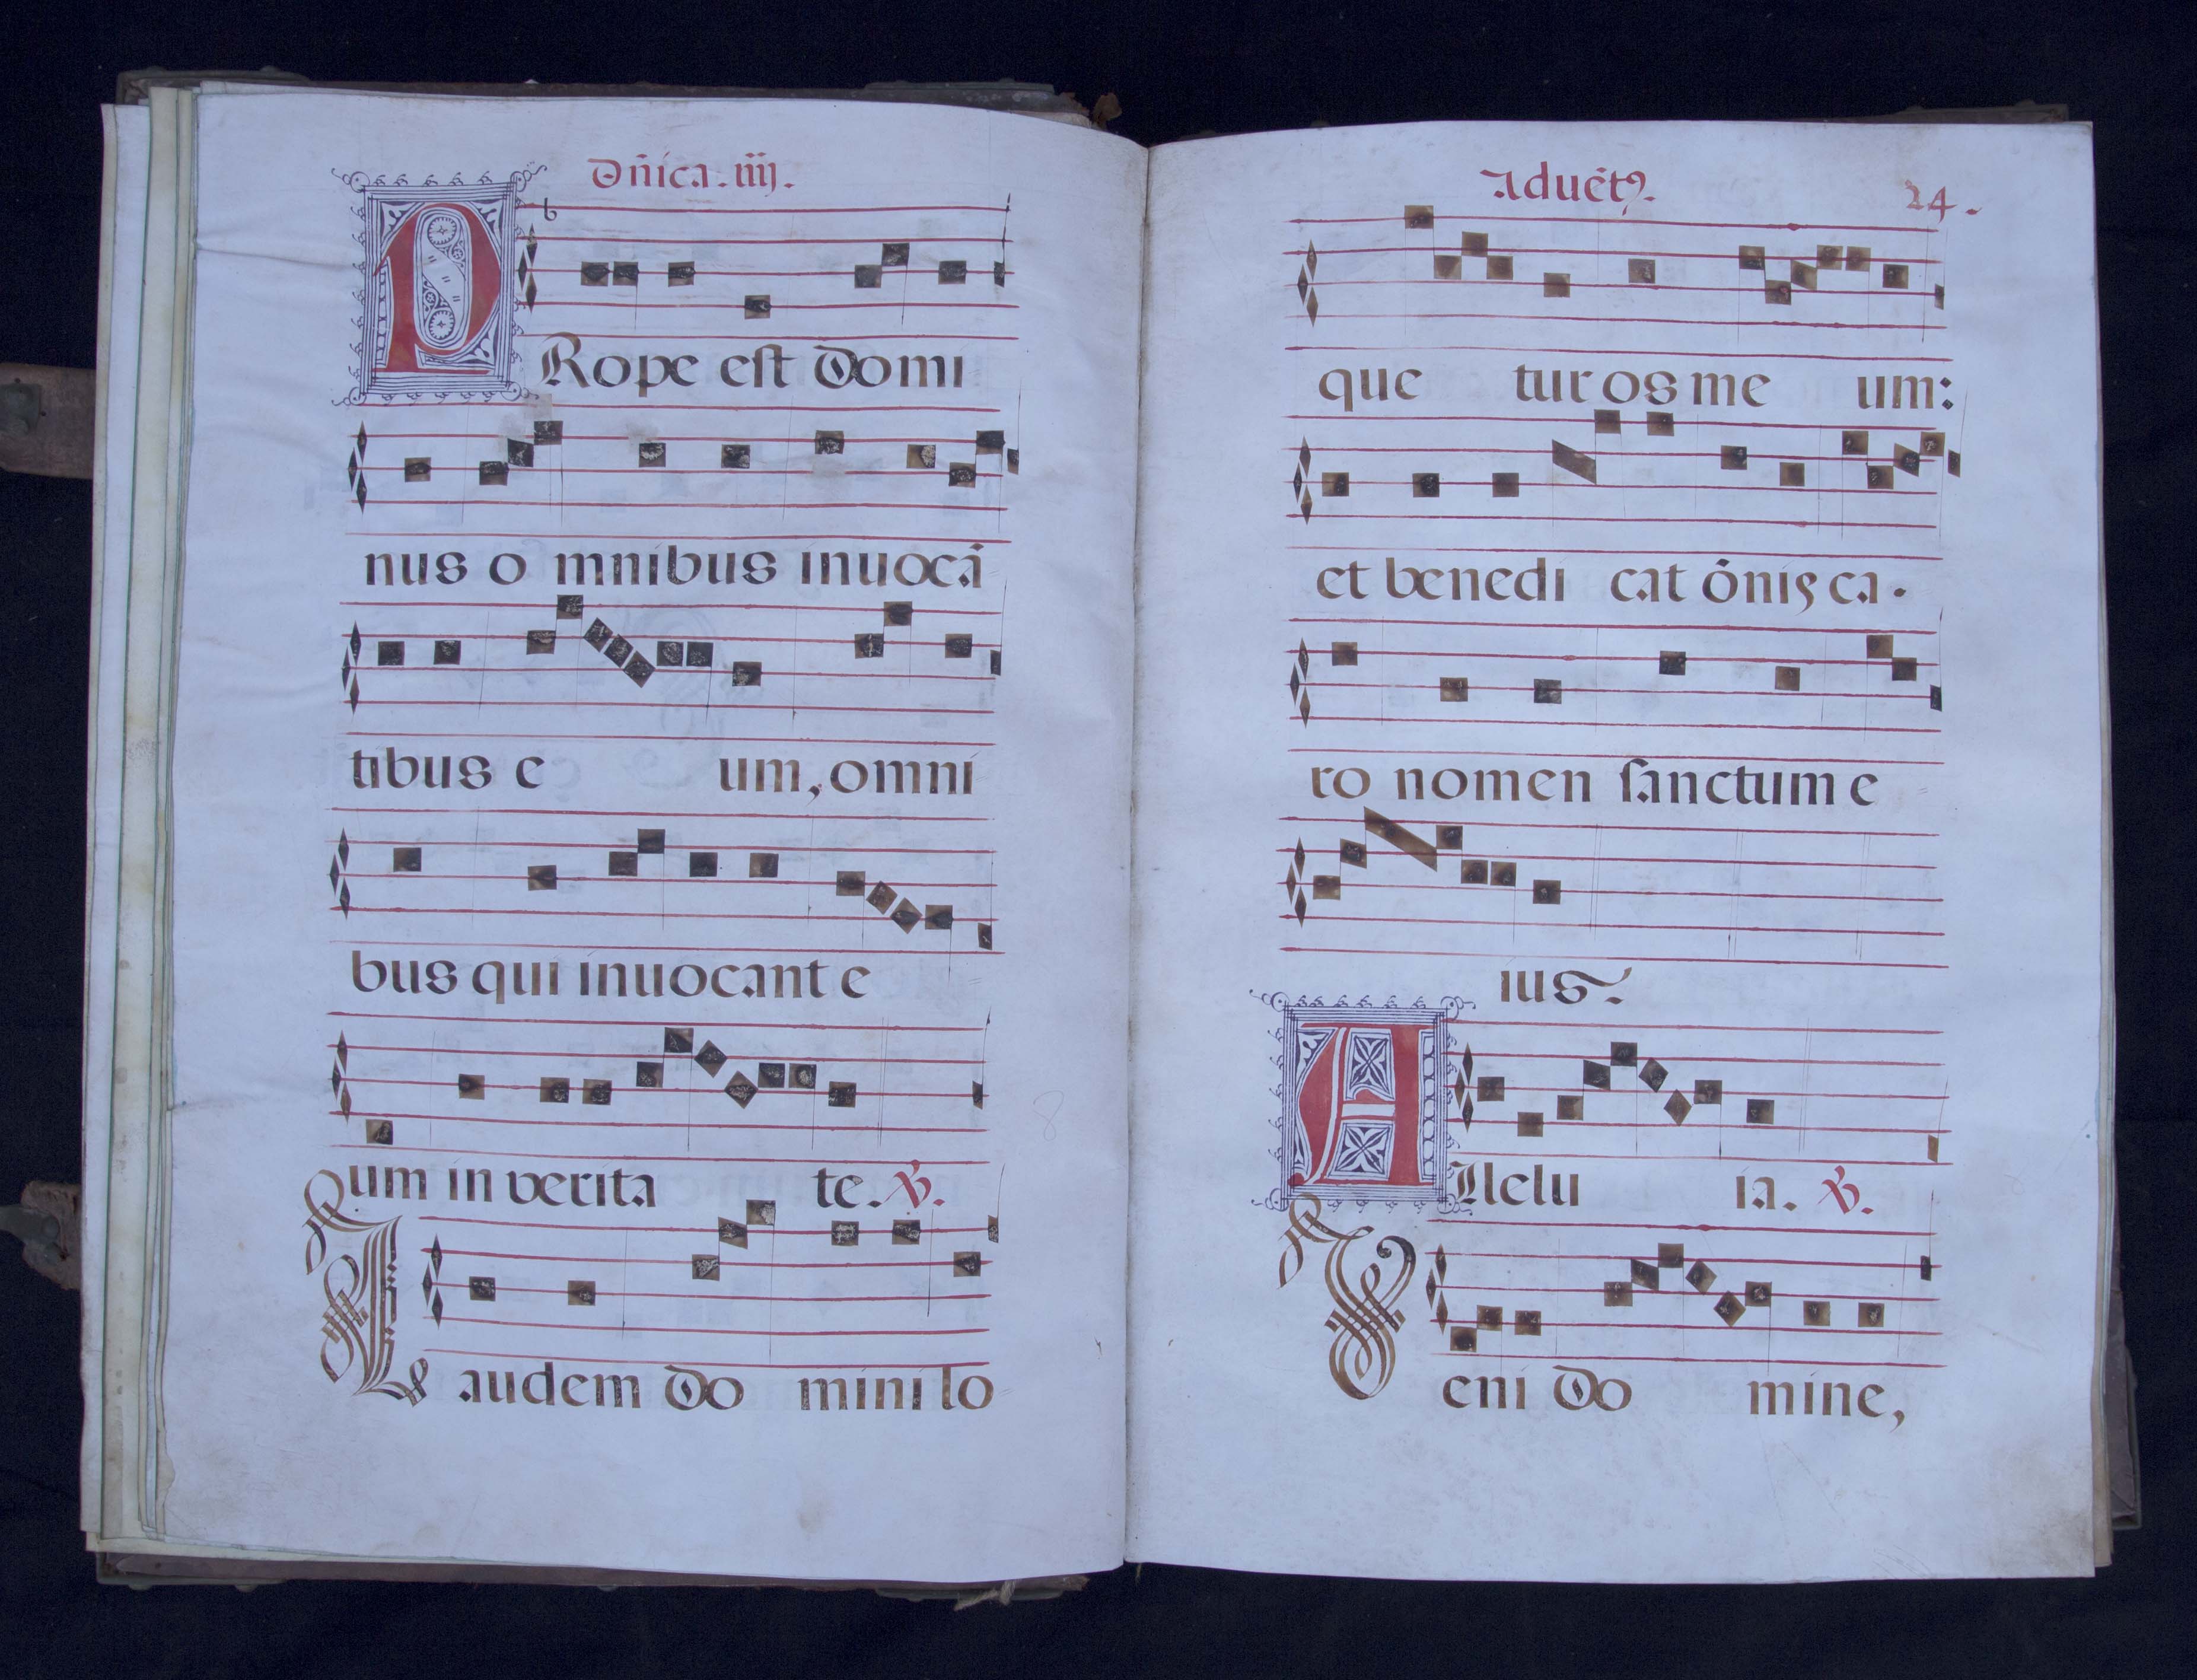 Dñica. iiij.
b
PRope est Domi
nus o mnibus inuocã
tibus e um, omni
bus qui inuocant e
um in verita te. ℣.
Laudem Do mini lo
Aduẽtꝰ.
24.
que tur os me um:
et benedi cat õnis ca.
ro nomen ſanctum e
ius.
Allelu ia. ℣.
Veni Do mine,